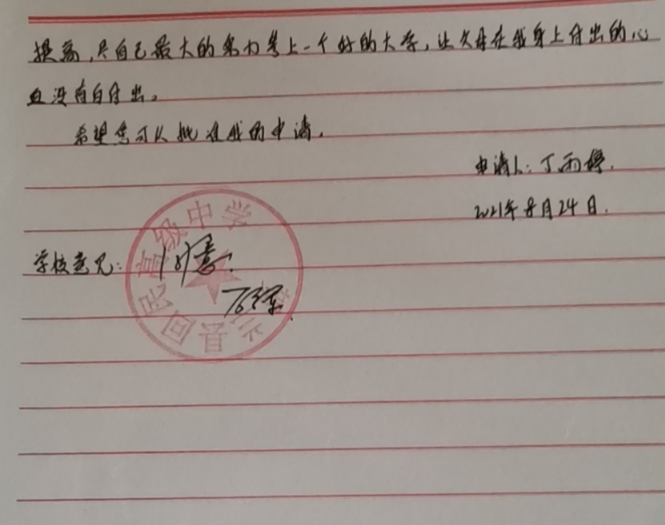 提高,尽自己最大的努力考上一个好的大学,让父母在我身上付出的心
血没有白付出。
希望您可以批准我的申请。
申请人:丁雨婷.
2021年8月24日.
学校意见: 同意.
兰县回民高级中学